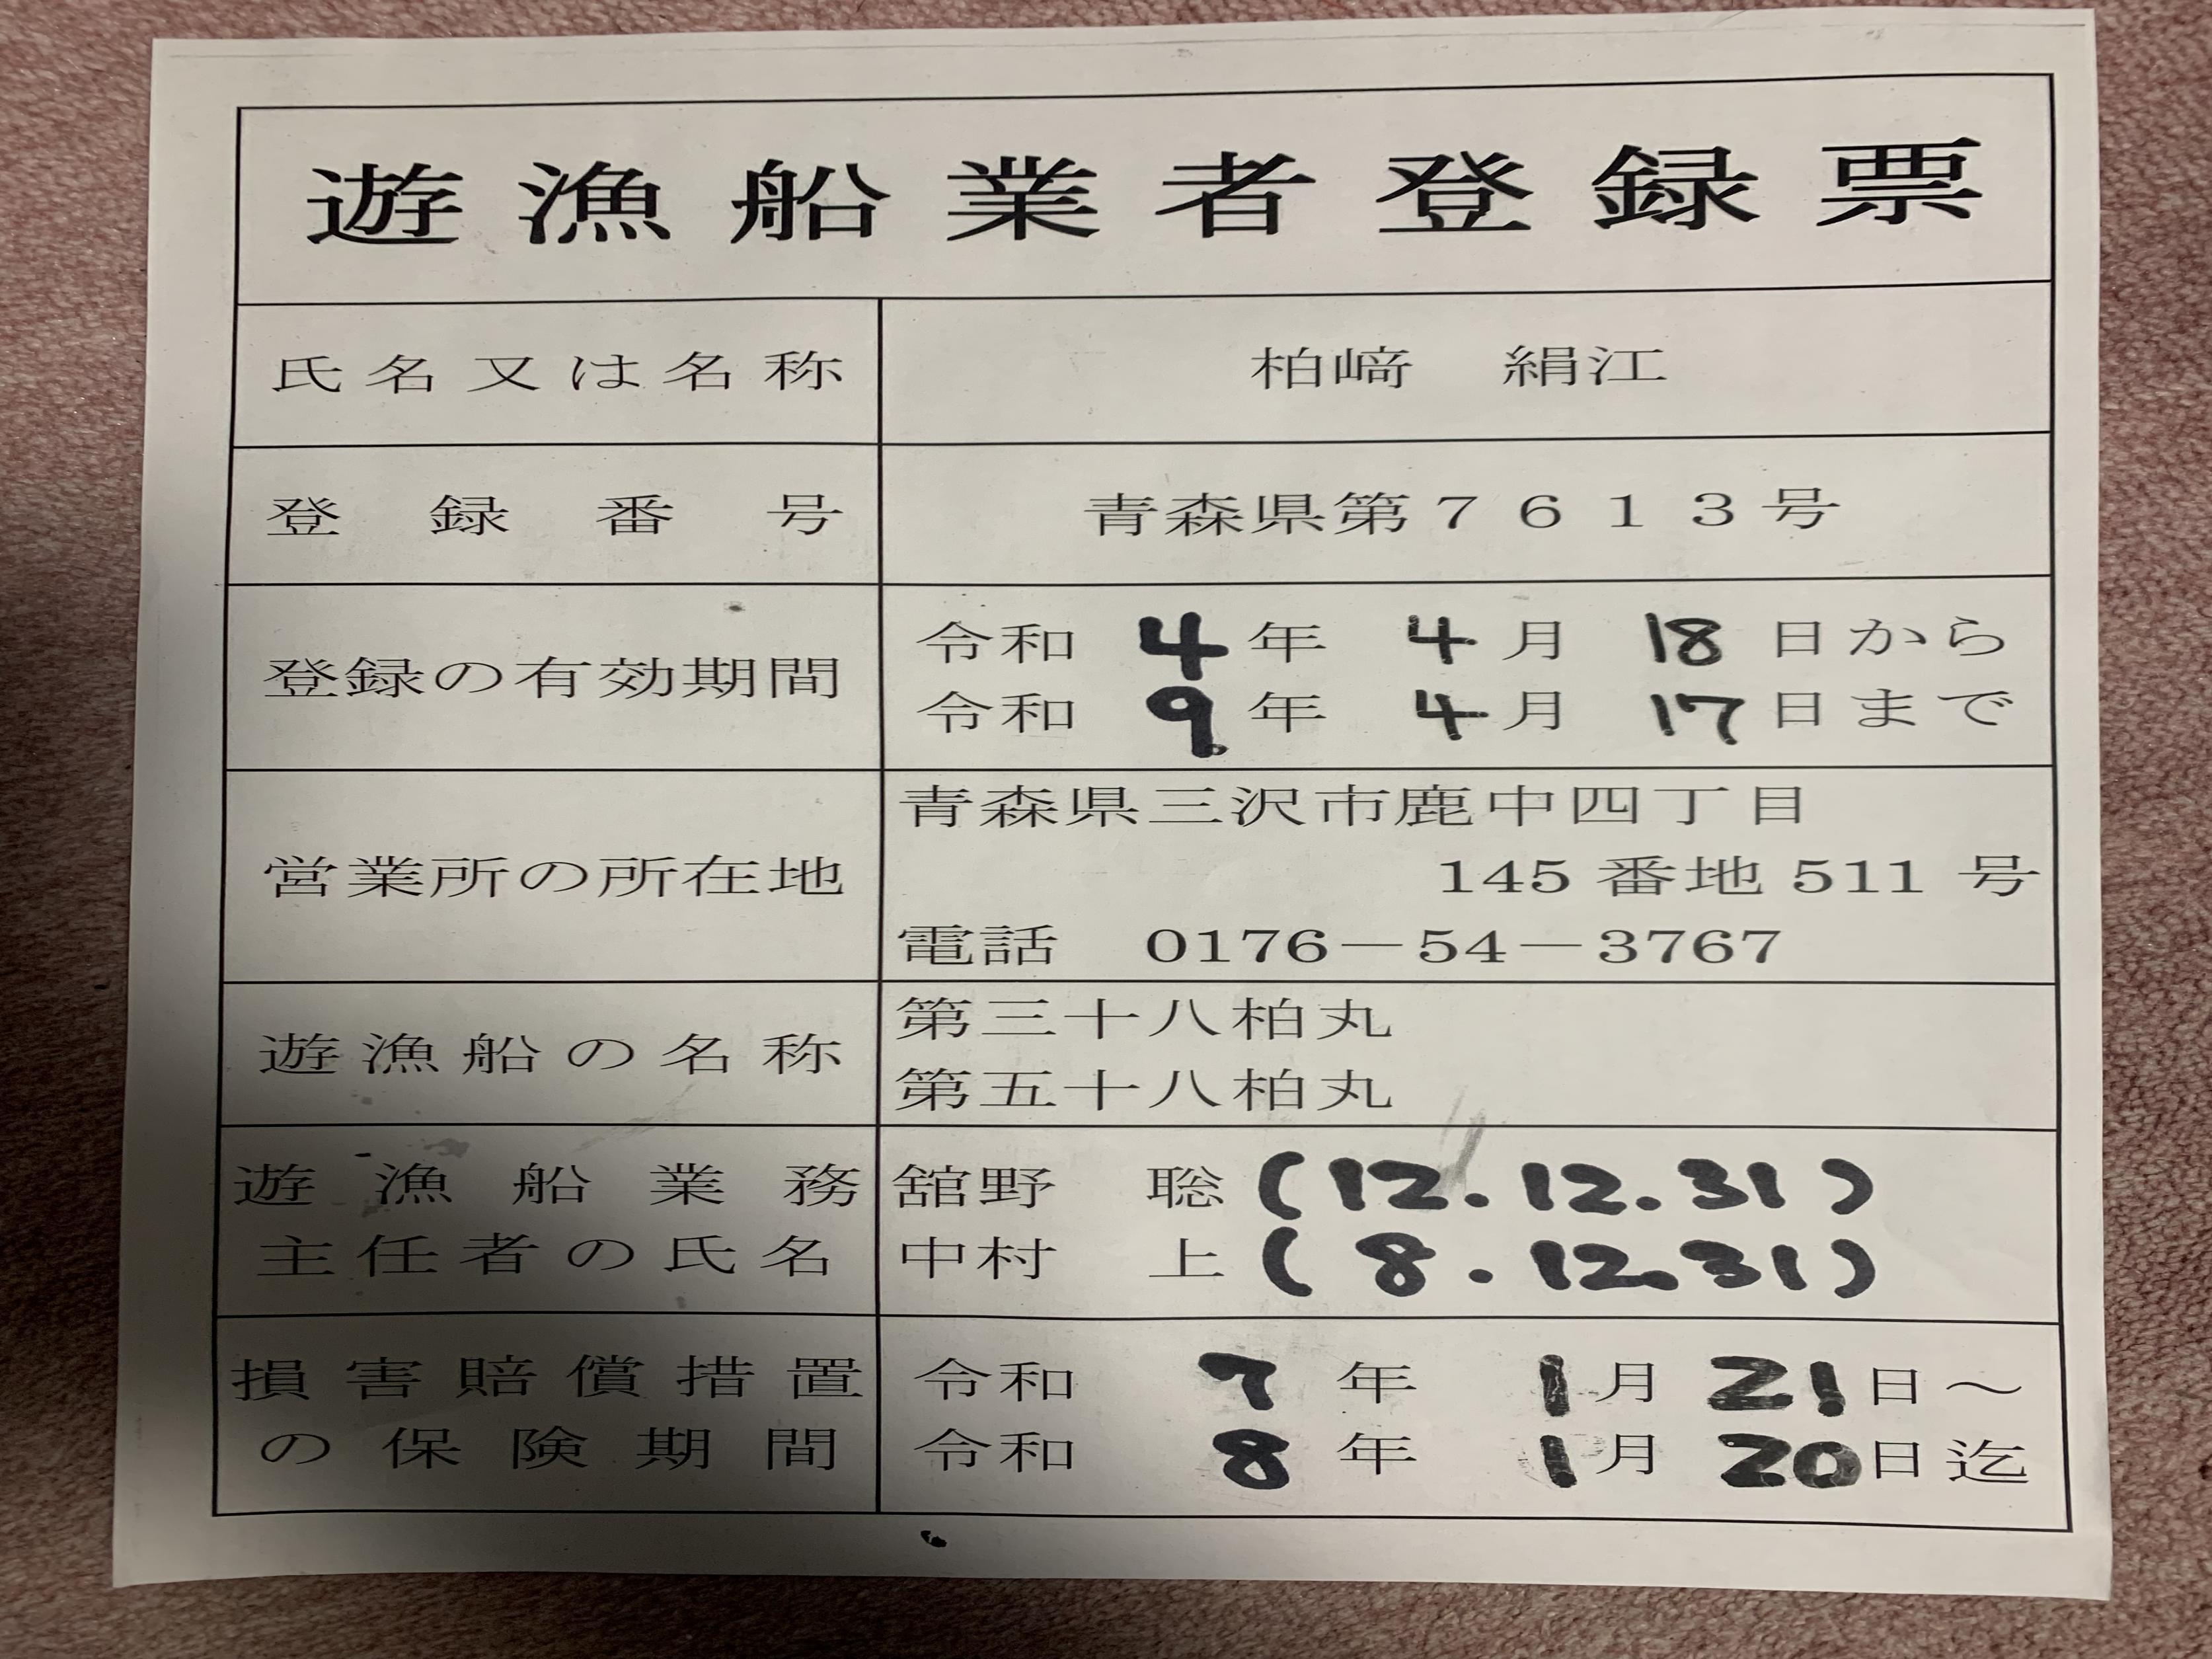 遊漁船業者登録票
氏名又は名称 柏﨑 絹江
登録番号 青森県第7613号
登録の有効期間 令和 4 年 4 月 18 日から
令和 9 年 4 月 17 日まで
営業所の所在地 青森県三沢市鹿中四丁目
145 番地 511 号
電話 0176－54－3767
遊漁船の名称 第三十八柏丸
第五十八柏丸
遊漁船業務 舘野 聡 (12.12.31)
主任者の氏名 中村 上 (8.12.31)
損害賠償措置 令和 7 年 1 月 21 日～
の保険期間 令和 8 年 1 月 20 日迄